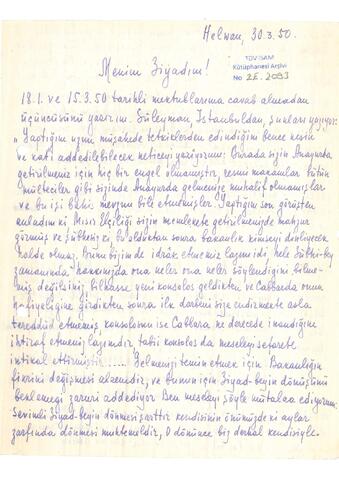 Helwan, 30.3.50.
TDV İSAM
Kütüphanesi Arşivi
No 2E.2093
Menim Ziyadım!
18.1. ve 15.3.50 tarihli mektublarıma cavab almadan
üçüncüsünü yazırım. Süleyman, İstanbuldan, şunları yazıyor:
"Yaptığım uzun müşahede tetkiklerden edindiğim bence kesin
ve kati addedilebilecek neticeyi yazıyorum: Burada sizin Anayurda
getirilmeniz için hiç bir engel olmamıştır, resmi makamlar bütün
mülteciler gibi sizinde Anayurda gelmenize muhalif olmamışlar
ve bu işi bahis mevzuu bile etmemişler. Yaptığım son görüşten
anladım ki Mısır Elçiliği sizin memlekete getirilmenizde mahzur
görmüş ve şübhesiz ki, bu olduktan sonra bakanlık kimseyi dinliyecek
halde olmaz. Bunu bizim de idrak etmemiz lazım idi, hele
zamanında hakkınızda ona neler ona neler söylendiğini bilme-
miş değilsiniz, bilhasse yeni konsolos geldikten ve Cabbarda onun
girdikten sonra ilk darbeni size endirmekte asla
tereddüd etmemiş, konsolosun ise Cabbara ne derecede inandığını
itiraf etmeniz lazımdır tabii konsolos da meseleyi sefarete
intikal ettirmiştir. .... Gelmenizi temin etmek için Bakanlığın
fikrini değişmesi elzemdir, ve bunun için Ziyad-beyin dönüşünü
beklemeği zaruri addediyor. Ben meseleyi şöyle mütalaa ediyorum:
Sevimli Ziyad-beyin dönmesi şarttır kendisinin önümüzde ki aylar
zarfında dönmesi muhtemeldir, O dönünce biz derhal kendisiyle.